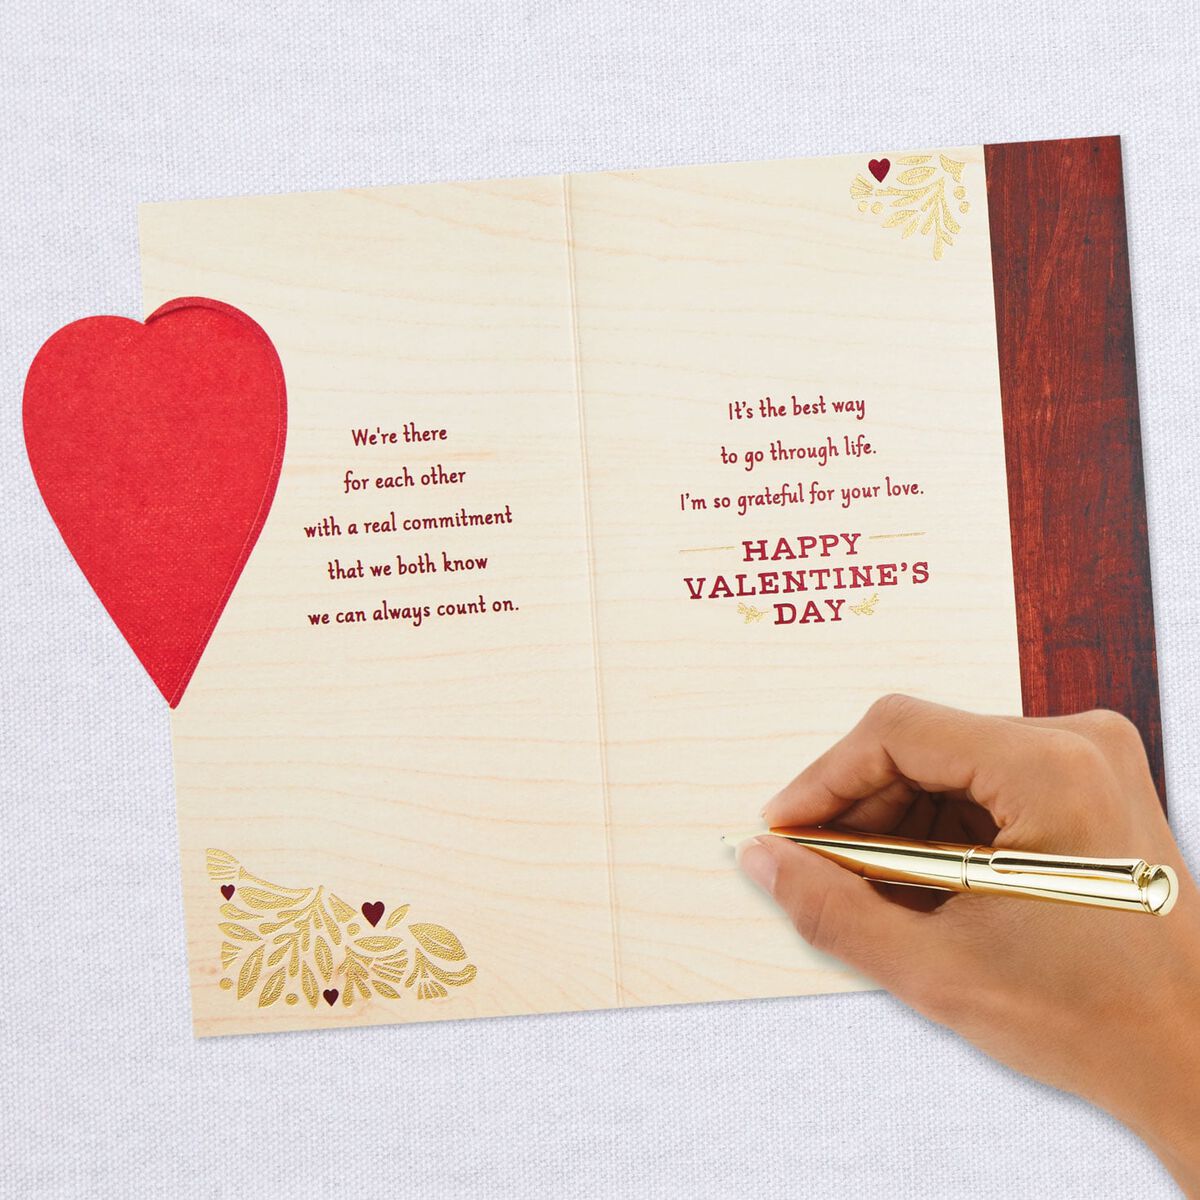 We're there
for each other
with a real commitment
that we both know
we can always count on.
It's the best way
to go through life.
I'm so grateful for your love.
HAPPY
VALENTINE'S
DAY